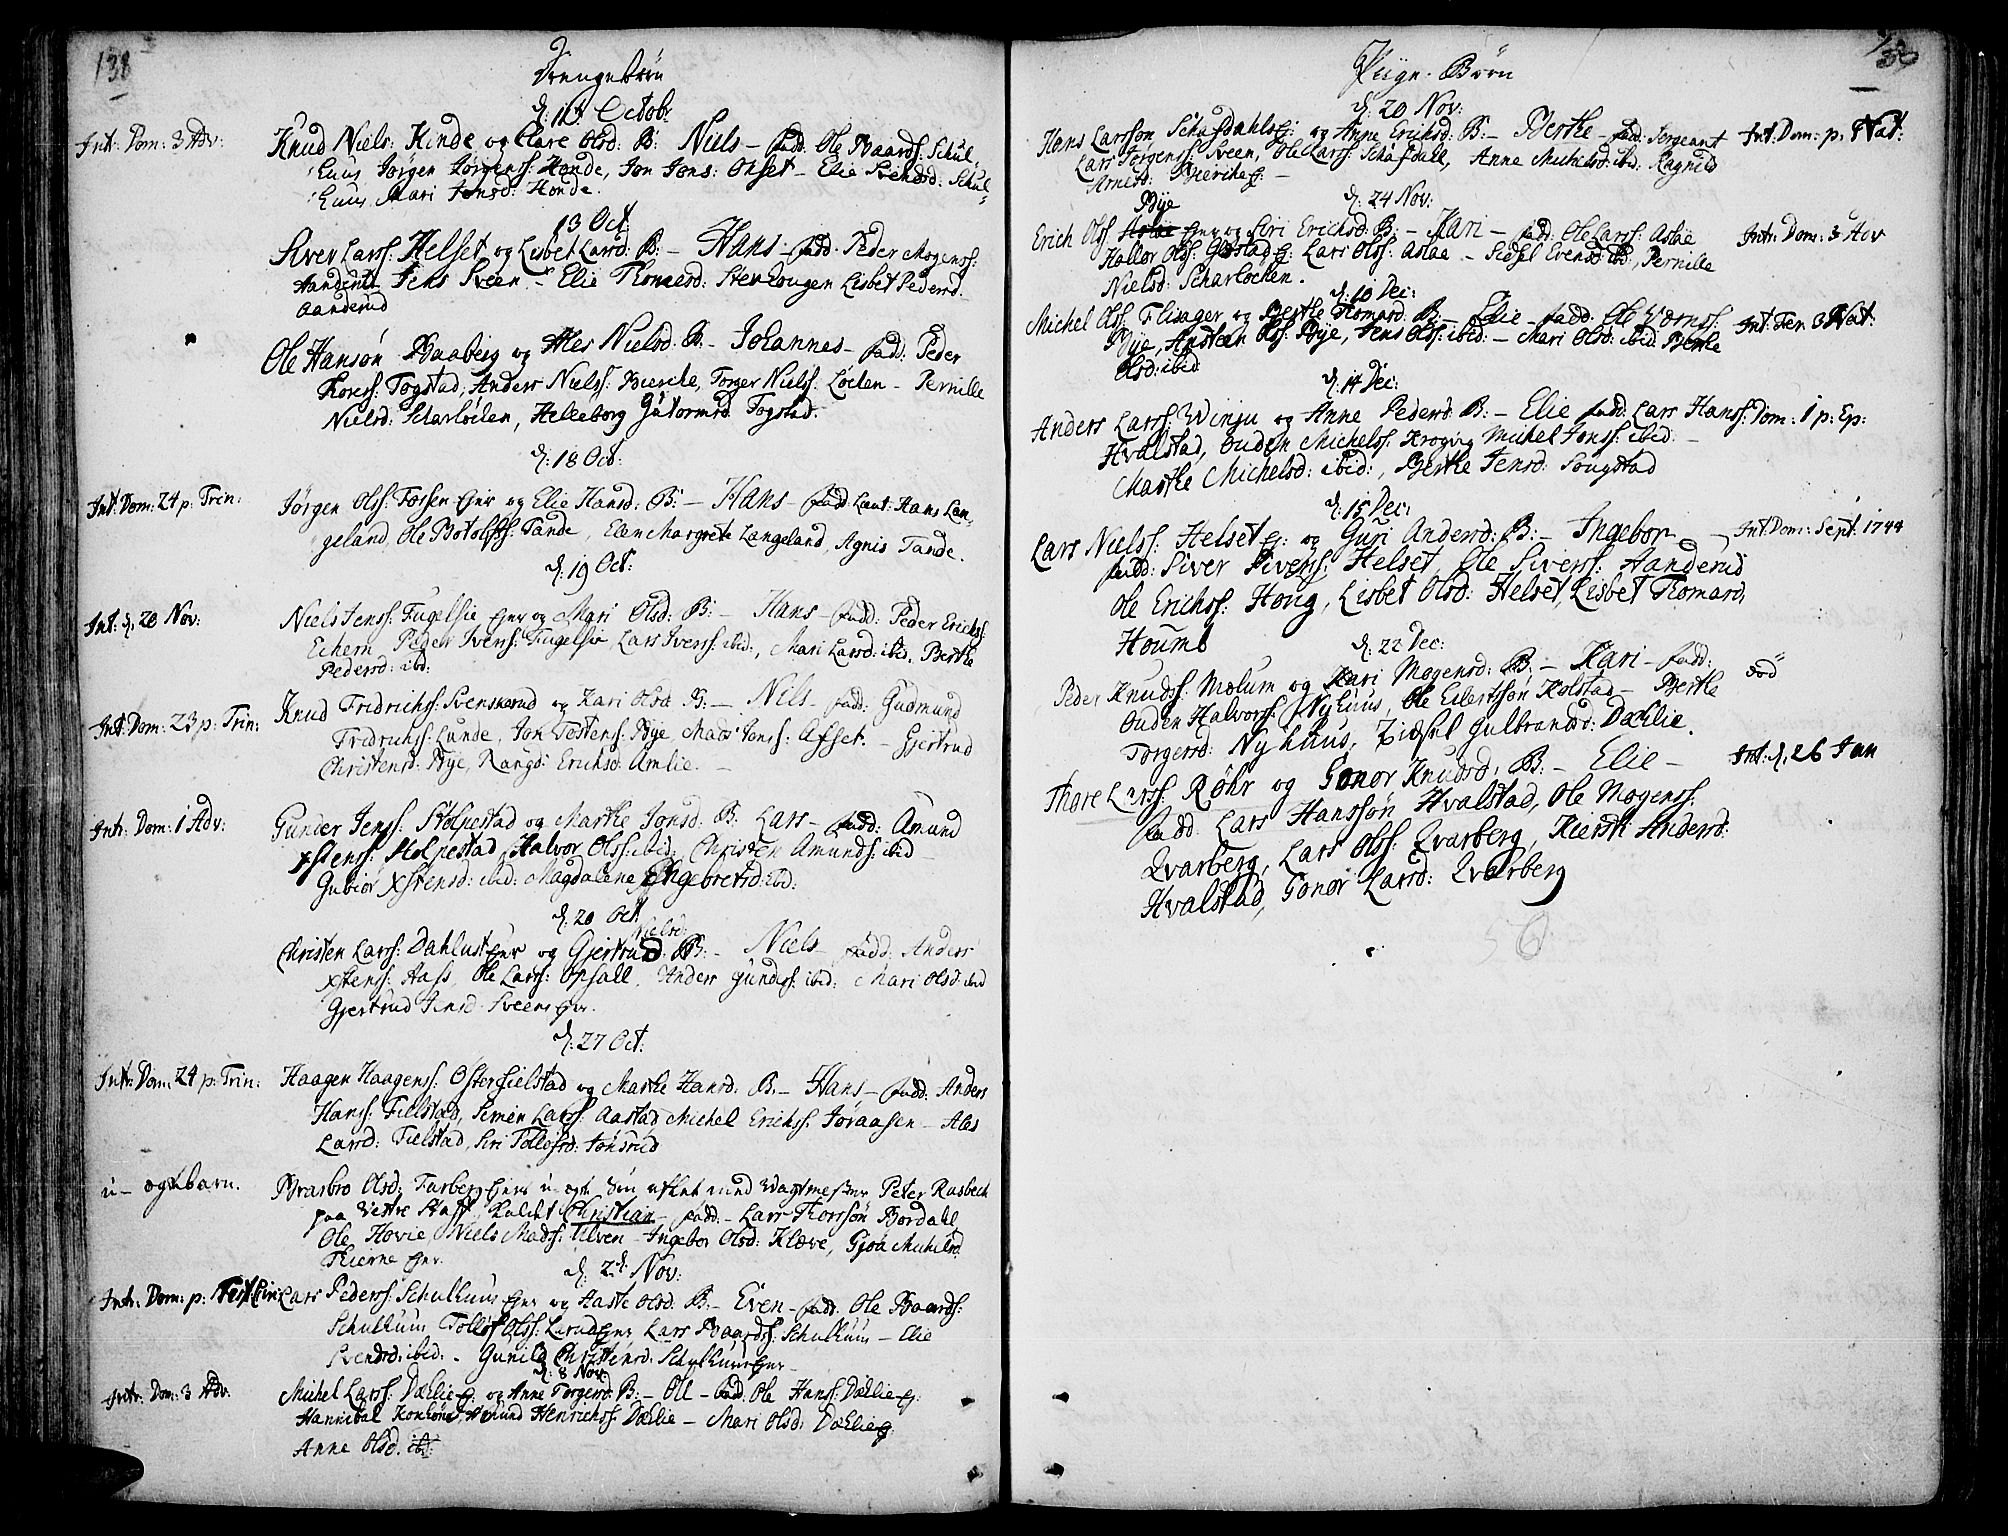 138
Drengebörn
d: 10 Octob:
Int: Dom: 3 Adv:
Knud Niels: Kinde og Clare Olsd: B: Niels – fadd: Ole Baards: Schul-
huus Jørgen Jørgenss: Honde, Jon Jons: Onset – Elie Svendsd: Schul-
huus Mari Jonsd: Honde.
13 Oct
Siver Larss: Helset og Lisbet Larsd: B: – Hans – fadd: Peder Mogenss:
Aanderud Jens Sveen – Elie Thomæsd: Lisbet Pedersd
Aanderud
Ole Hansøn Baaberg og Ales Nielsd: B: – Johannes – fad: Peder
Thorss: Togstad, Anders Nielss: Bierche, Torger Nielss: Løchen – Pernille
Nielsd: Scharløchen, Helleborg Gutormsd: Togstad.
d: 18 Oct:
Int: Dom: 24 p: Trin:
Jørgen Olss: Fossen Ejer og Elie Hansd: B: – Hans – fadd: Laut: Hans Lan-
geland, Ole Botolfss: Tande, Elen Margrete Langeland, Agnis Tande.
d: 19 Oct:
Int: d: 20 Nov:
Niels Jenss: Fugelsie Ejer og Mari Olsd: B: – Hans – fadd: Peder Erichss:
Echern Peder Iverss: Fugelsie, Lars Iverss: ibid:, Mari Larsd: ibid. Berthe
Pedersd: ibid:
Int: Dom: 23 p: Trin:
Knud Fridrichss: Svenskerud og Kari Olsd: B: – Nils – fadd: Gudmund
Fridrichss: Lunde, Jon Tostenss: Bye, Mads Jonss: Afset. – Gjertrud
Christensd: Bye, Rangdi Erichsd: Amlie. –
Intr: Dom: 1 Adv:
Gunder Jenss: Stolpestad og Marthe Jonsd: B: Lars – fadd: Amund
Xstenss: Stolpestad, Halvor Olss: ibid: Christen Amunds: ibid –
Gubiør Xstensd: ibid: Magdalene Engebretsd: ibid:
d: 20 Oct
Nielsd:
Christen Larss: Dahlust Ejer og Gjertrud B: – Niels – fadd: Anders
Xstenss: Aass, Ole Larss: Opsall, Anders Gunderss: ibid: Mari Olsd: ibid
Gjertrud Jensd: Sveens Ejer.
d: 27 Oct:
Intr: Dom: 24 p: Trin:
Haagen Haagenss: Øster Fielstad og Marthe Hansd: B: – Hans – fadd: Anders
Hanss: Fielstad, Simen Larss: Aastad Michel Erichss: Joraasen – Ales
Larsd: Fielstad, Siri Tollofsd: Jonsrud
u – ægte barn.
Brasbro Olsd: Farberg Ejers u-ægte Søn aflet med Wagtmester Peter Rasbech
paa Vestre Staff kaldet Christian – fadd – Lars Thorsøn Bordahl
Ole Hovie, Niels Madss: Ulven – Ingebor Olsd: Kløve, Gjøa Michelsd
Thierne Ejer.
d: 2de Nov:
Intr: Dom: p: Fest: Cir:
Lars Pederss: Schulhuus Ejer og Aaste Olsd: B: – Even – fadd: Ole Baards:
Schulhuus Tollof Olss: Larud Ejer Lars Baardss: Schulhuus – Elie
Svendsd: ibid: – Gunild Christensd: Schulhuus Ejer
d: 8 Nov:
Intr: Dom: 3 Adv
Michel Larss: Dæhlie Ej: og Anne Torgersd: B: – Oll – fad: Ole Hanss: Dæhlie Ej:
Hannibal Amund Henrichss: Dæhlie – Mari Olsd: Dæhlie Ej:
Anne Olsd: ibd:
139
Piige-Börn
d: 20 Nov:
Hans Larsøn Schafdahls Ej: og Anne Erichsd: B: – Berthe – fad: Sergeant
Int: Dom: p: Nat:
Lars Jørgenss: Sveen, Ole Larss: Schafdahl, Anne Michelsd: ibid: Ragnild
Arnesd: Bierche Ej: –
d: 24 Nov:
Bye
Erich Olss: Aslae Ejer og Siri Erichsd: B: – Kari – fad: Ole Larss: Aslae
Intr: Dom: 3 Adv
Hallor Olss: Gustad Ej: Lars Olss: Aslae – Sidsel Evensd: ibd, Pernille
Nielsd: Scharløchen.
d: 10 Dec:
Michel Olss: Flisager og Berthe Thomasd: B: – Elie – fadd: Ole Værnss:
Int: Fer: 3 Nat:
Bye, Amsten Olss: Bye, Jens Olss: ibid: – Mari Olsd: ibid Berthe
Olsd: ibid
d: 14 Dec:
Anders Larss: Winju og Anne Pedersd: B: – Elie fadd: Lars Hanss:
Dom: 1 p: Ep:
Hvalstad, Ouden Michelss: Krogvig Michel Jonss: ibid: –
Marthe Michelsd: ibid:, Berthe Jensd: Sougstad
d: 15 Dec:
Lars Nielss: Helset Ej: og Guri Andersd: B: – Ingebor –
Int: Dom: Sept: 1744
fadd: Siver Siverss: Helset, Ole Siverss: Aanderud
Ole Erichss: Houg, Lisbet Olsd: Helset, Lisbet Thomasd:
Houmb
d: 22 Dec:
Peder Knudss: Mælum og Kari Mogensd: B: – Kari – fadd:
död
Ouden Halvorss: Nyhuus, Ole Eilertsøn Kolstad – Berthe
Torgersd: Nyhuus, Zidsel Gulbrandsd: Dæhlie.
Int: d: 26 Jan
Thore Larss: Røhr og Gonor Knudsd: B: – Elie –
fadd: Lars Hanssøn Hvalstad, Ole Mogenss:
Qvarberg, Lars Olss: Qvarberg, Kiersti Andersd:
Hvalstad, Gonor Larsd: Qvarberg
56